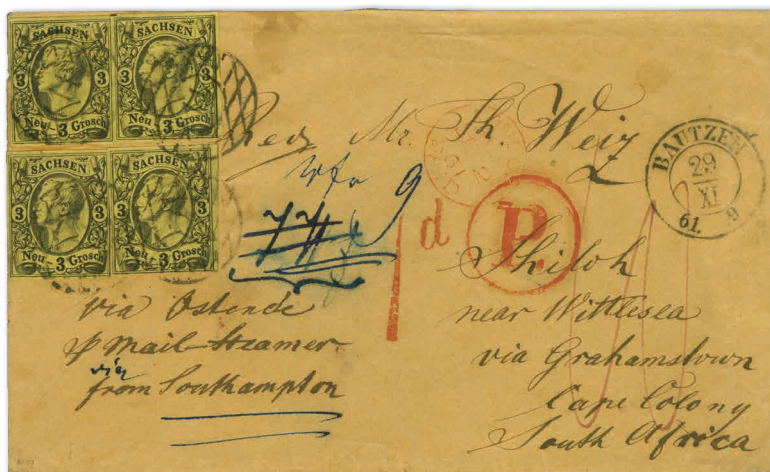 SACHSEN
3 3
Neu-3 Grosch
SACHSEN
3 3
Neu-3 Grosch
SACHSEN
3 3
Neu-3 Grosch
SACHSEN
3 3
Neu-3 Grosch
Mr. Th. Weiz
BAUTZEN
29
XI
61. 9
wfr 9
1d
P.
Shiloh
near Wittlesea
via Grahamstown
Cape Colony
South Africa
via Ostende
p Mail-Steamer
via
from Southampton